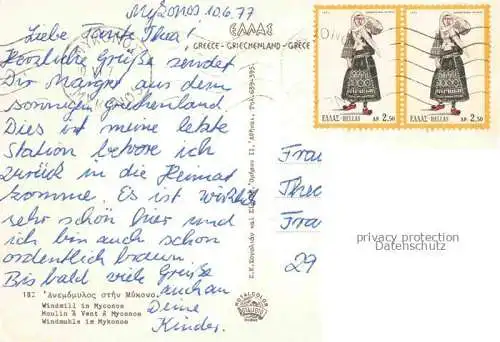 Mykonos 10.6.77
Liebe Tante Thea!
Herzliche Grüße sendet
Dir Margret aus dem
sonnigen Griechenland.
Dies ist meine letzte
Station bevore ich
zurück in die Heimat
komme. Es ist wirklich
sehr schön hier und
ich bin auch schon
ordentlich braun.
Bis bald viele Grüße
auch an
Deine
Kinder.
ΕΛΛΑΣ
GREECE - GRIECHENLAND - GRÈCE
ΕΛΛΑΣ-HELLAS ΔΡ 2.50
ΕΛΛΑΣ-HELLAS ΔΡ 2.50
Frau
Thec
Fra
29
privacy protection
Datenschutz
182 Ἀνεμόμυλος στὴν Μύκονο.
Windmill in Myconos
Moulin à Vent à Myconos
Windmuhle in Mykonos